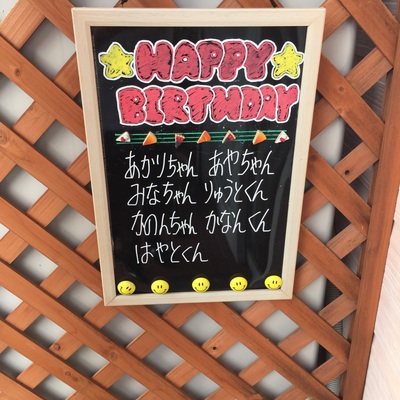 HAPPY
BIRTHDAY
あかりちゃん あやちゃん
みなちゃん りゅうとくん
かのんちゃん かなんくん
はやとくん